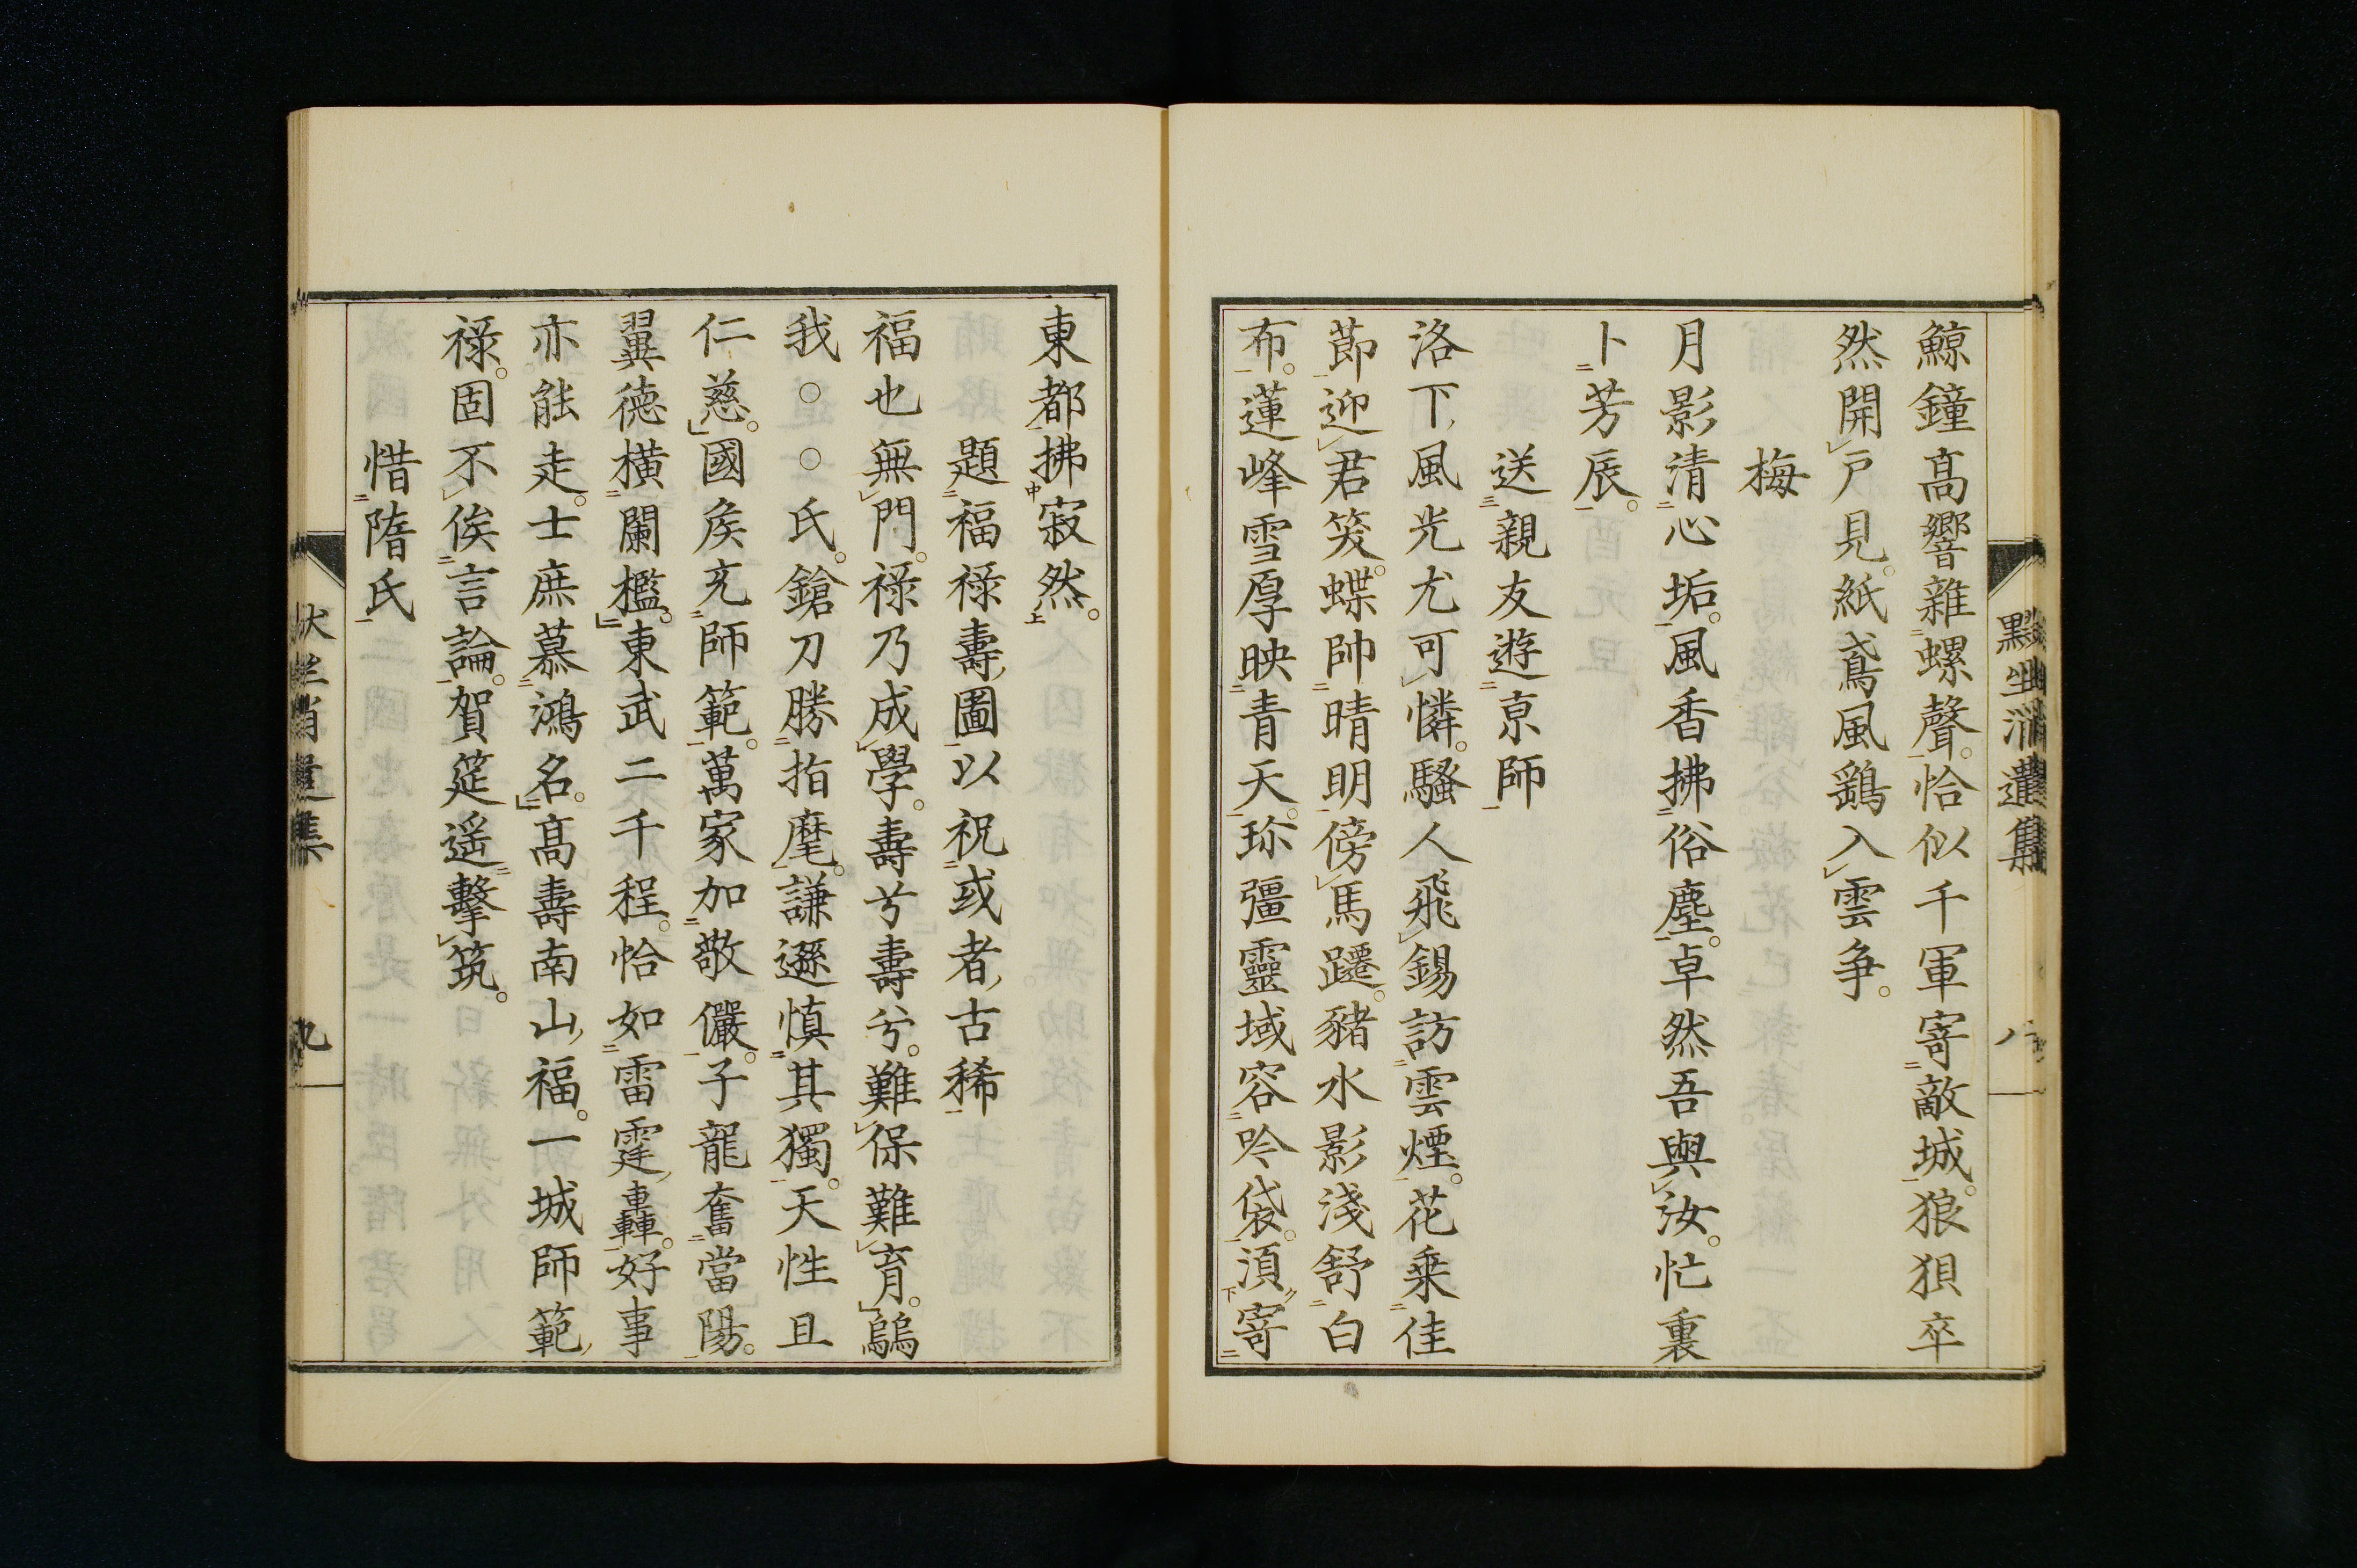 鯨鐘高響雜螺聲。恰似千軍寄敵城。狼狽卒
然開戸見。紙鳶風鷂入雲爭。
梅
月影清心垢。風香拂俗塵。卓然吾與汝。忙裏
卜芳辰。
送親友遊京師
洛下風光尤可憐。騷人飛錫訪雲煙。花乗佳
節迎君笑。蝶帥晴明傍馬躚。豬水影淺舒白
布。蓮峰雪厚映青天。珎彊靈域容吟袋。須寄
八
東都拂寂然。
題福祿壽圖以祝或者古稀
福也無門。祿乃成學。壽兮壽兮。難保難育。鷂
我○○氏。鎗刀勝指麾。謙遜慎其獨。天性且
仁慈。國矦充師範。萬家加敬儼。子龍奮當陽。
翼德橫闌檻。東武二千程。恰如雷霆轟。好事
亦能走。士庶慕鴻名。高壽南山福。一城師範
祿。固不俟言論。賀筵遥擊筑。
惜隋氏
九